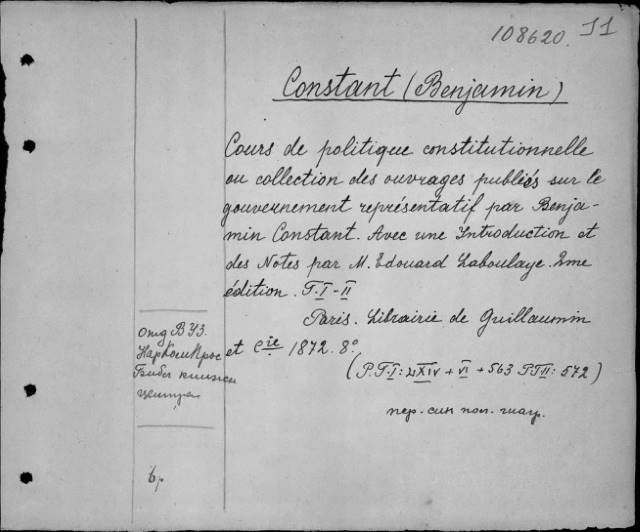 108620. II
Constant (Benjamin)
Cours de politique constitutionnelle
ou collection des ouvrages publiés sur le
gouvernement représentatif par Benja-
min Constant. Avec une Introduction et
des Notes par M. Edouard Laboulaye. 2me
édition. T. I - II
Paris. Librairie de Guillaumin
et Cie 1872. 8°.
(P.T.I: XIV + VI + 563 P.T.II: 572)
пер. син кол.
отд ВУЗ.
НарКомПрос
Библ книжн
центра
бр